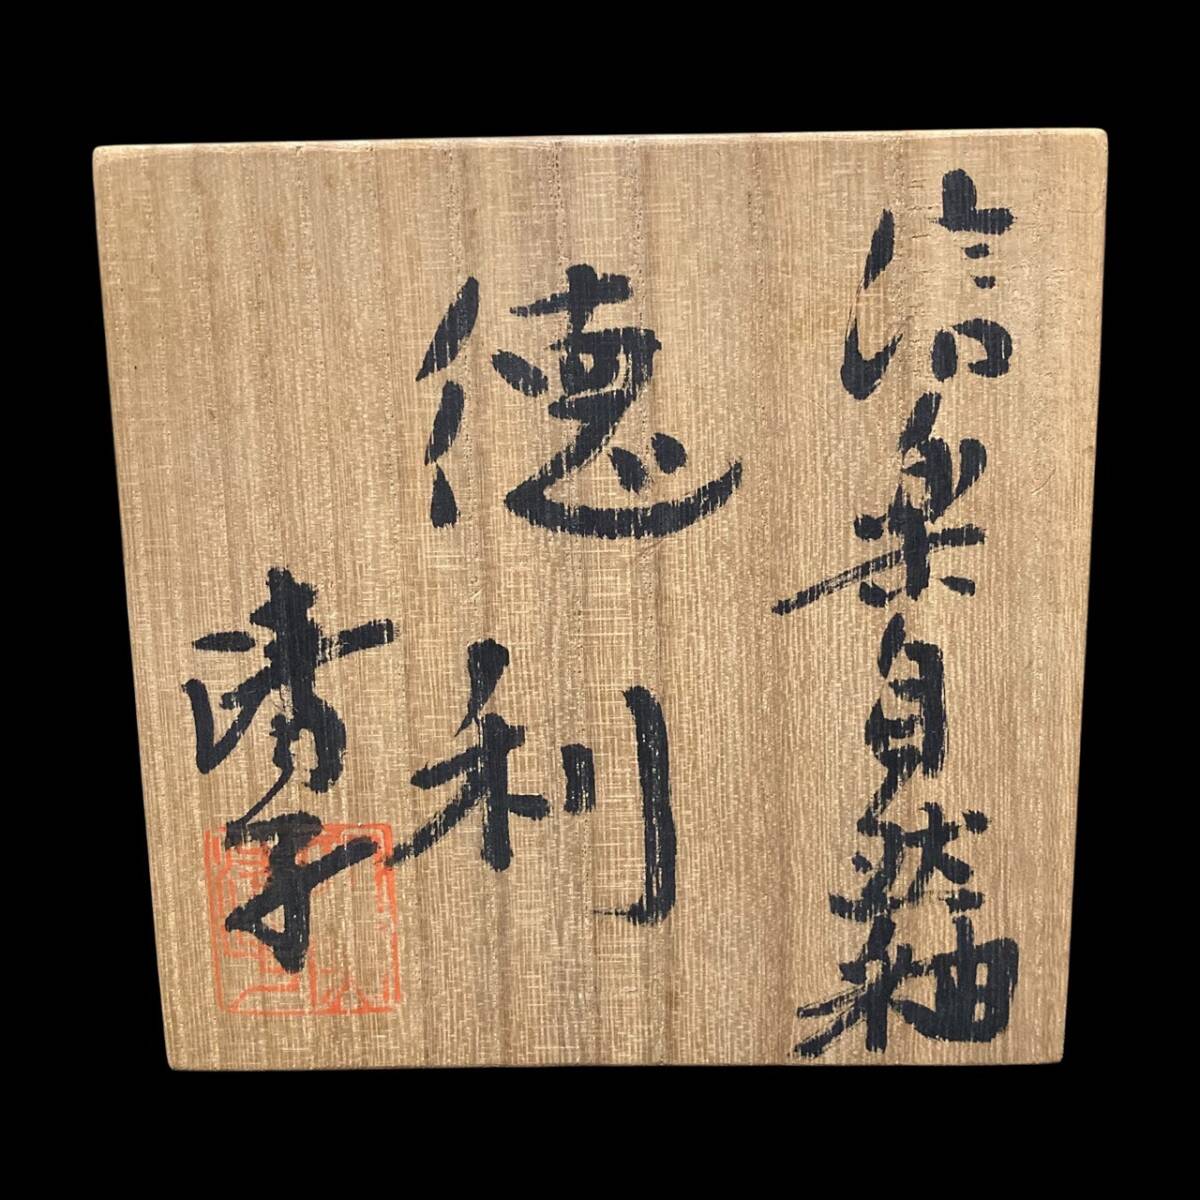 信楽自然釉
徳利
清子